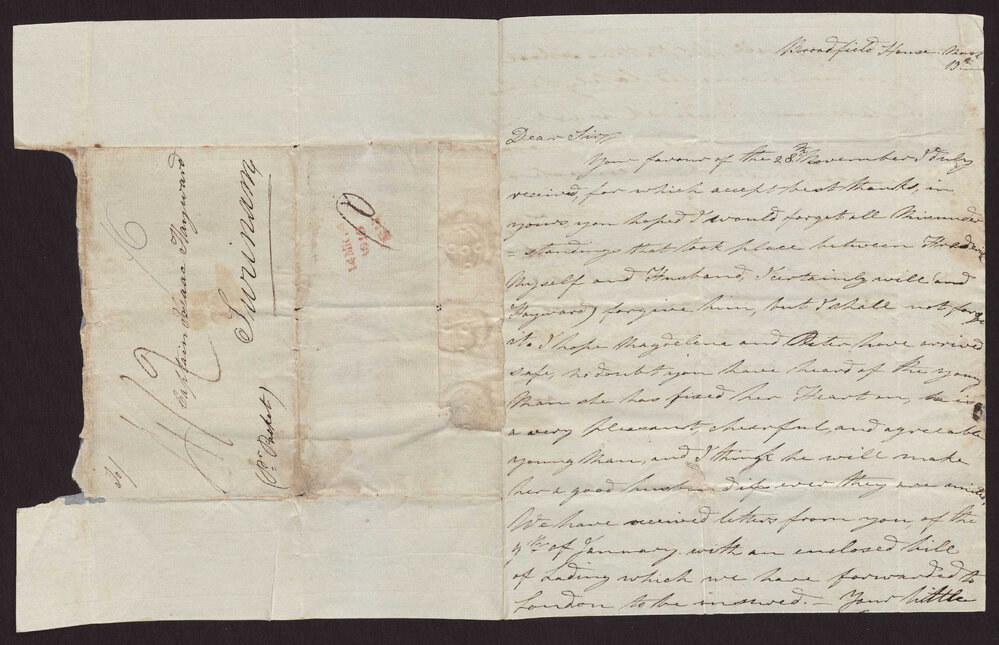 To/
Captain Isaac Hayward
Surinam
(Pr. Packet)
Broadfield House March
13th
Dear Sir
Your favour of the 28th November I duly
received, for which accept best thanks, in
yours you hoped I would forget all Misunder
=standings that took place between Frederick
Myself and Husband, I certainly will (and
Hayward) forgive him, but I shall not forget
it. I hope Magdelene and Peter have arrived
safe, no doubt you have heard of the young
Man she has fixed her Heart on, he is
a very pleasant, chearful, and agreeable
young Man, and I think he will make
her a good husband if ever they are united.
We have received letters from you of the
9th of January with an enclosed bill
of Lading which we have forwarded to
London to be insured. — Your little